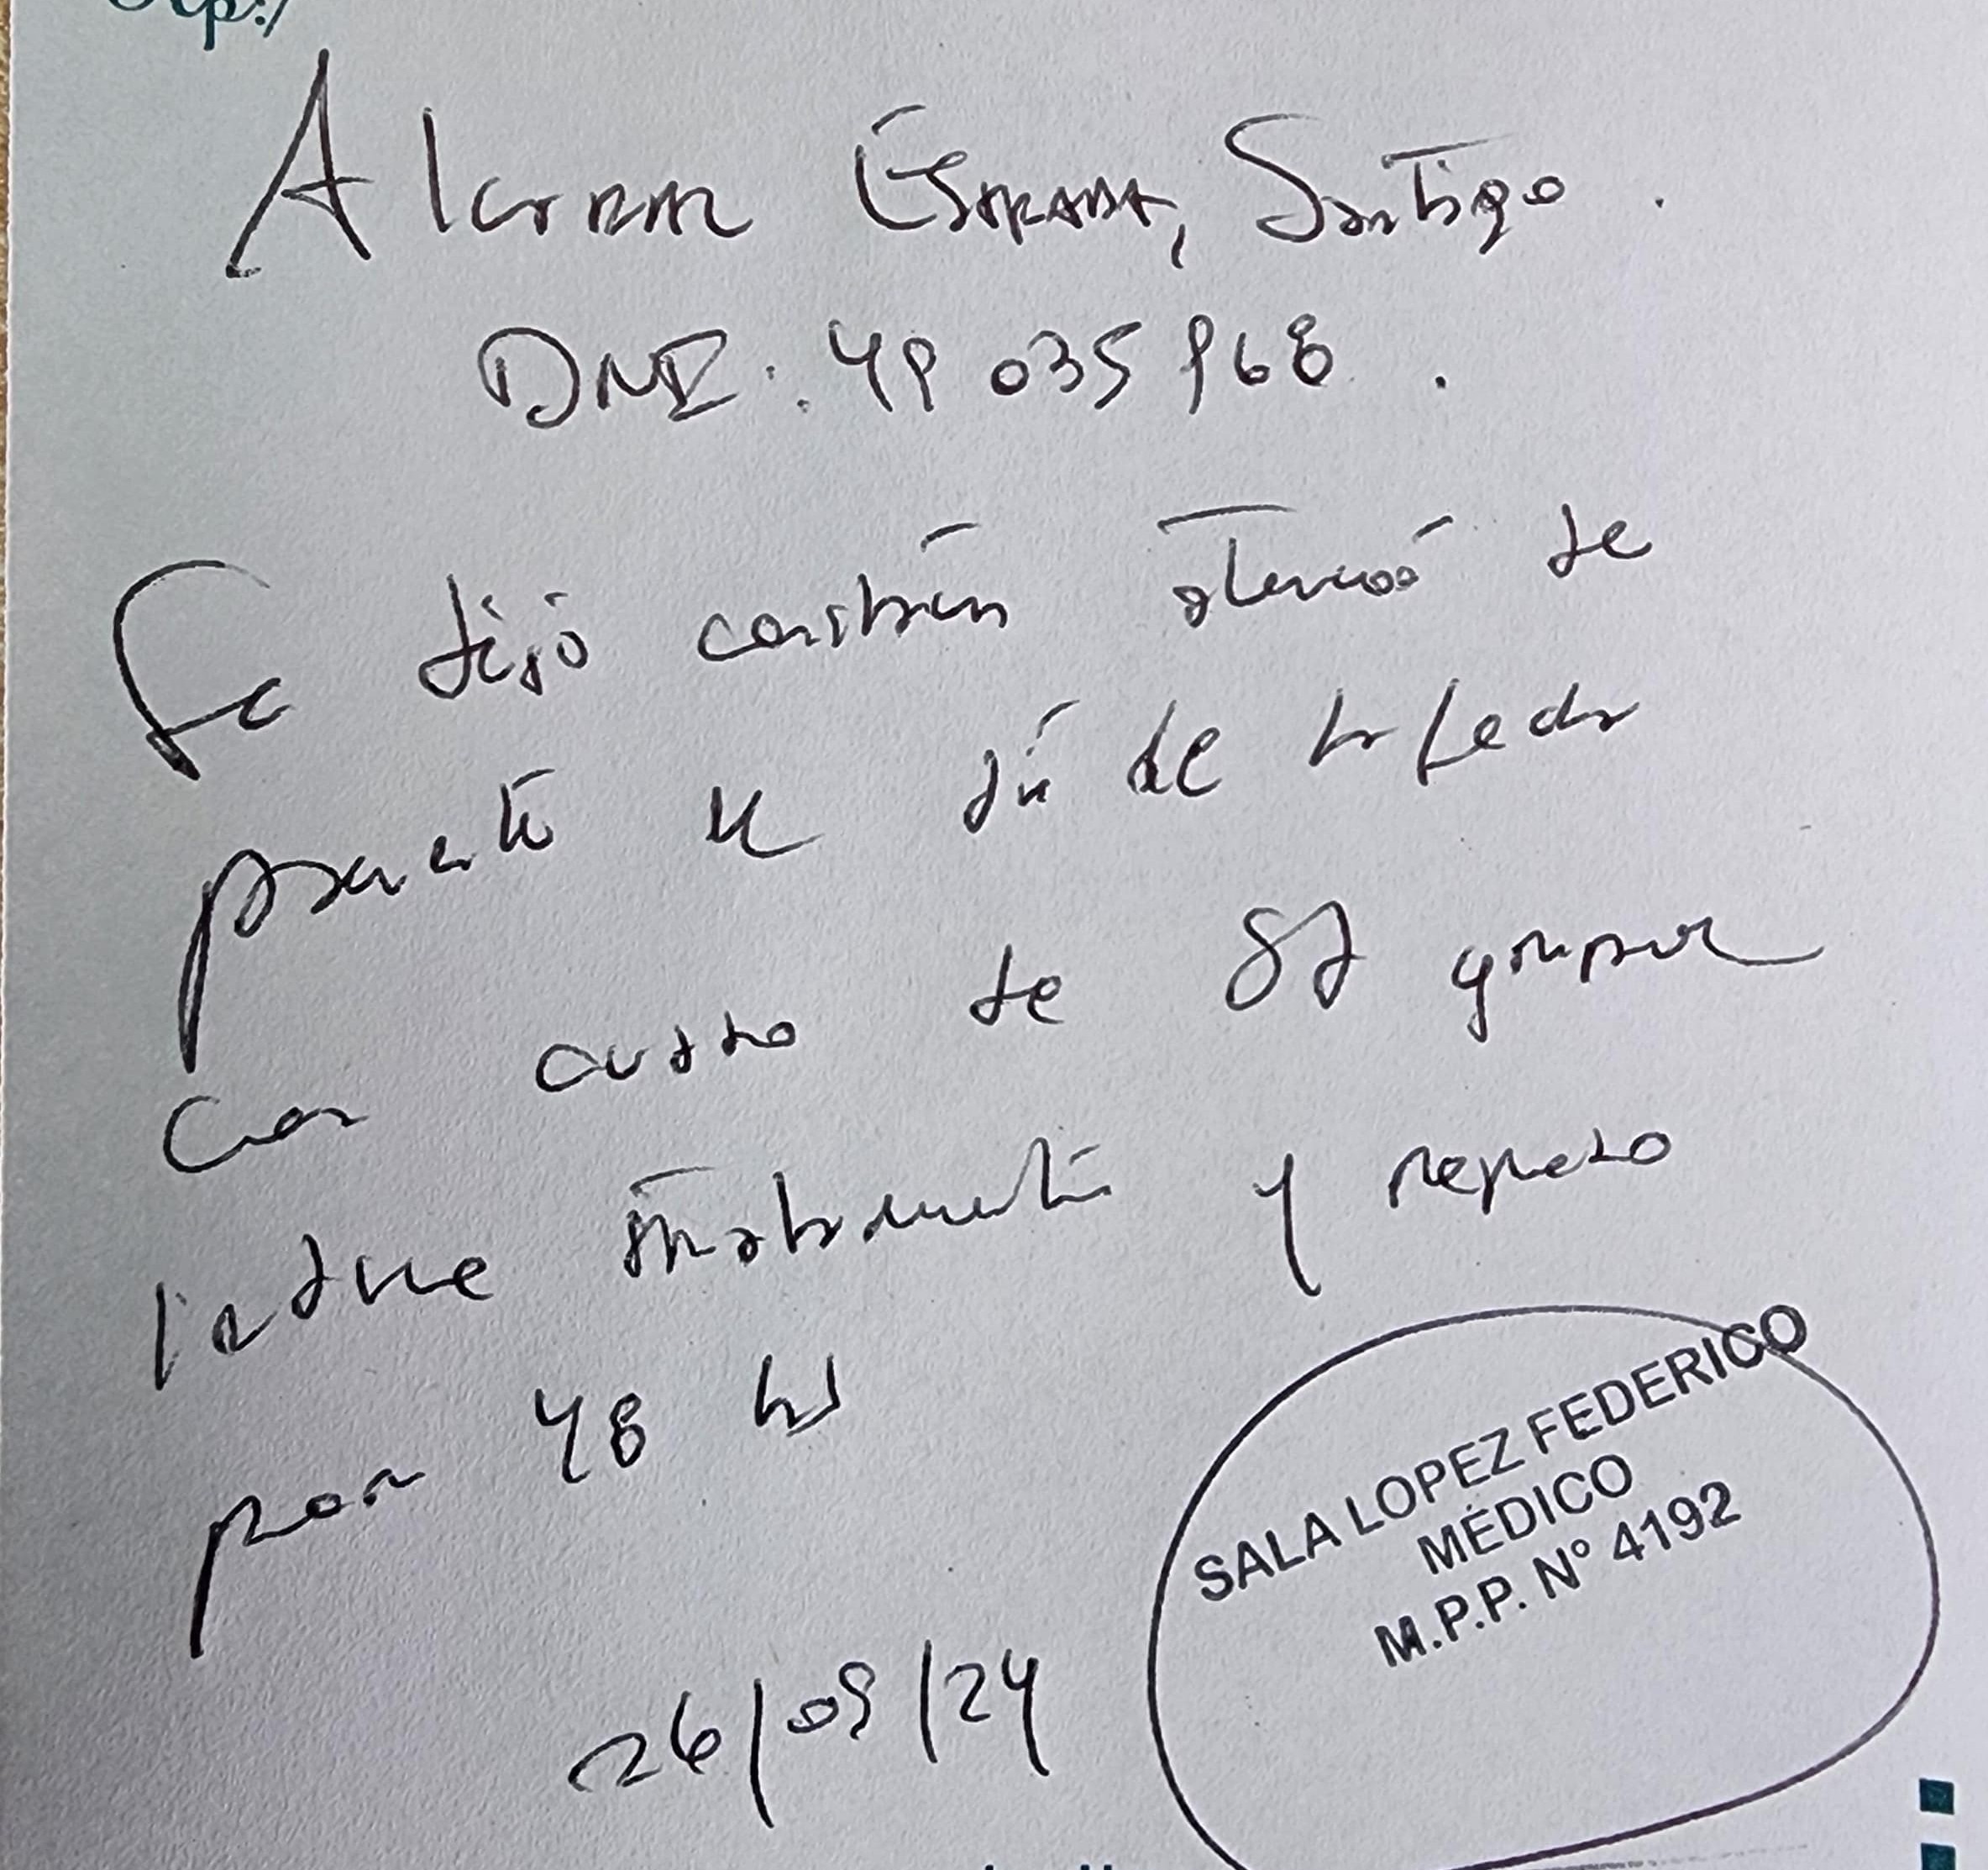 Rp:/
Santiago.
DNI: 49 035 968.
Se dejó constancia atención de
paciente el día de la fecha
con cuadro de Sd gripal
Indico tratamiento y reposo
por 48 hs
26/09/24
SALA LOPEZ FEDERICO
MÉDICO
M.P.P. N° 4192